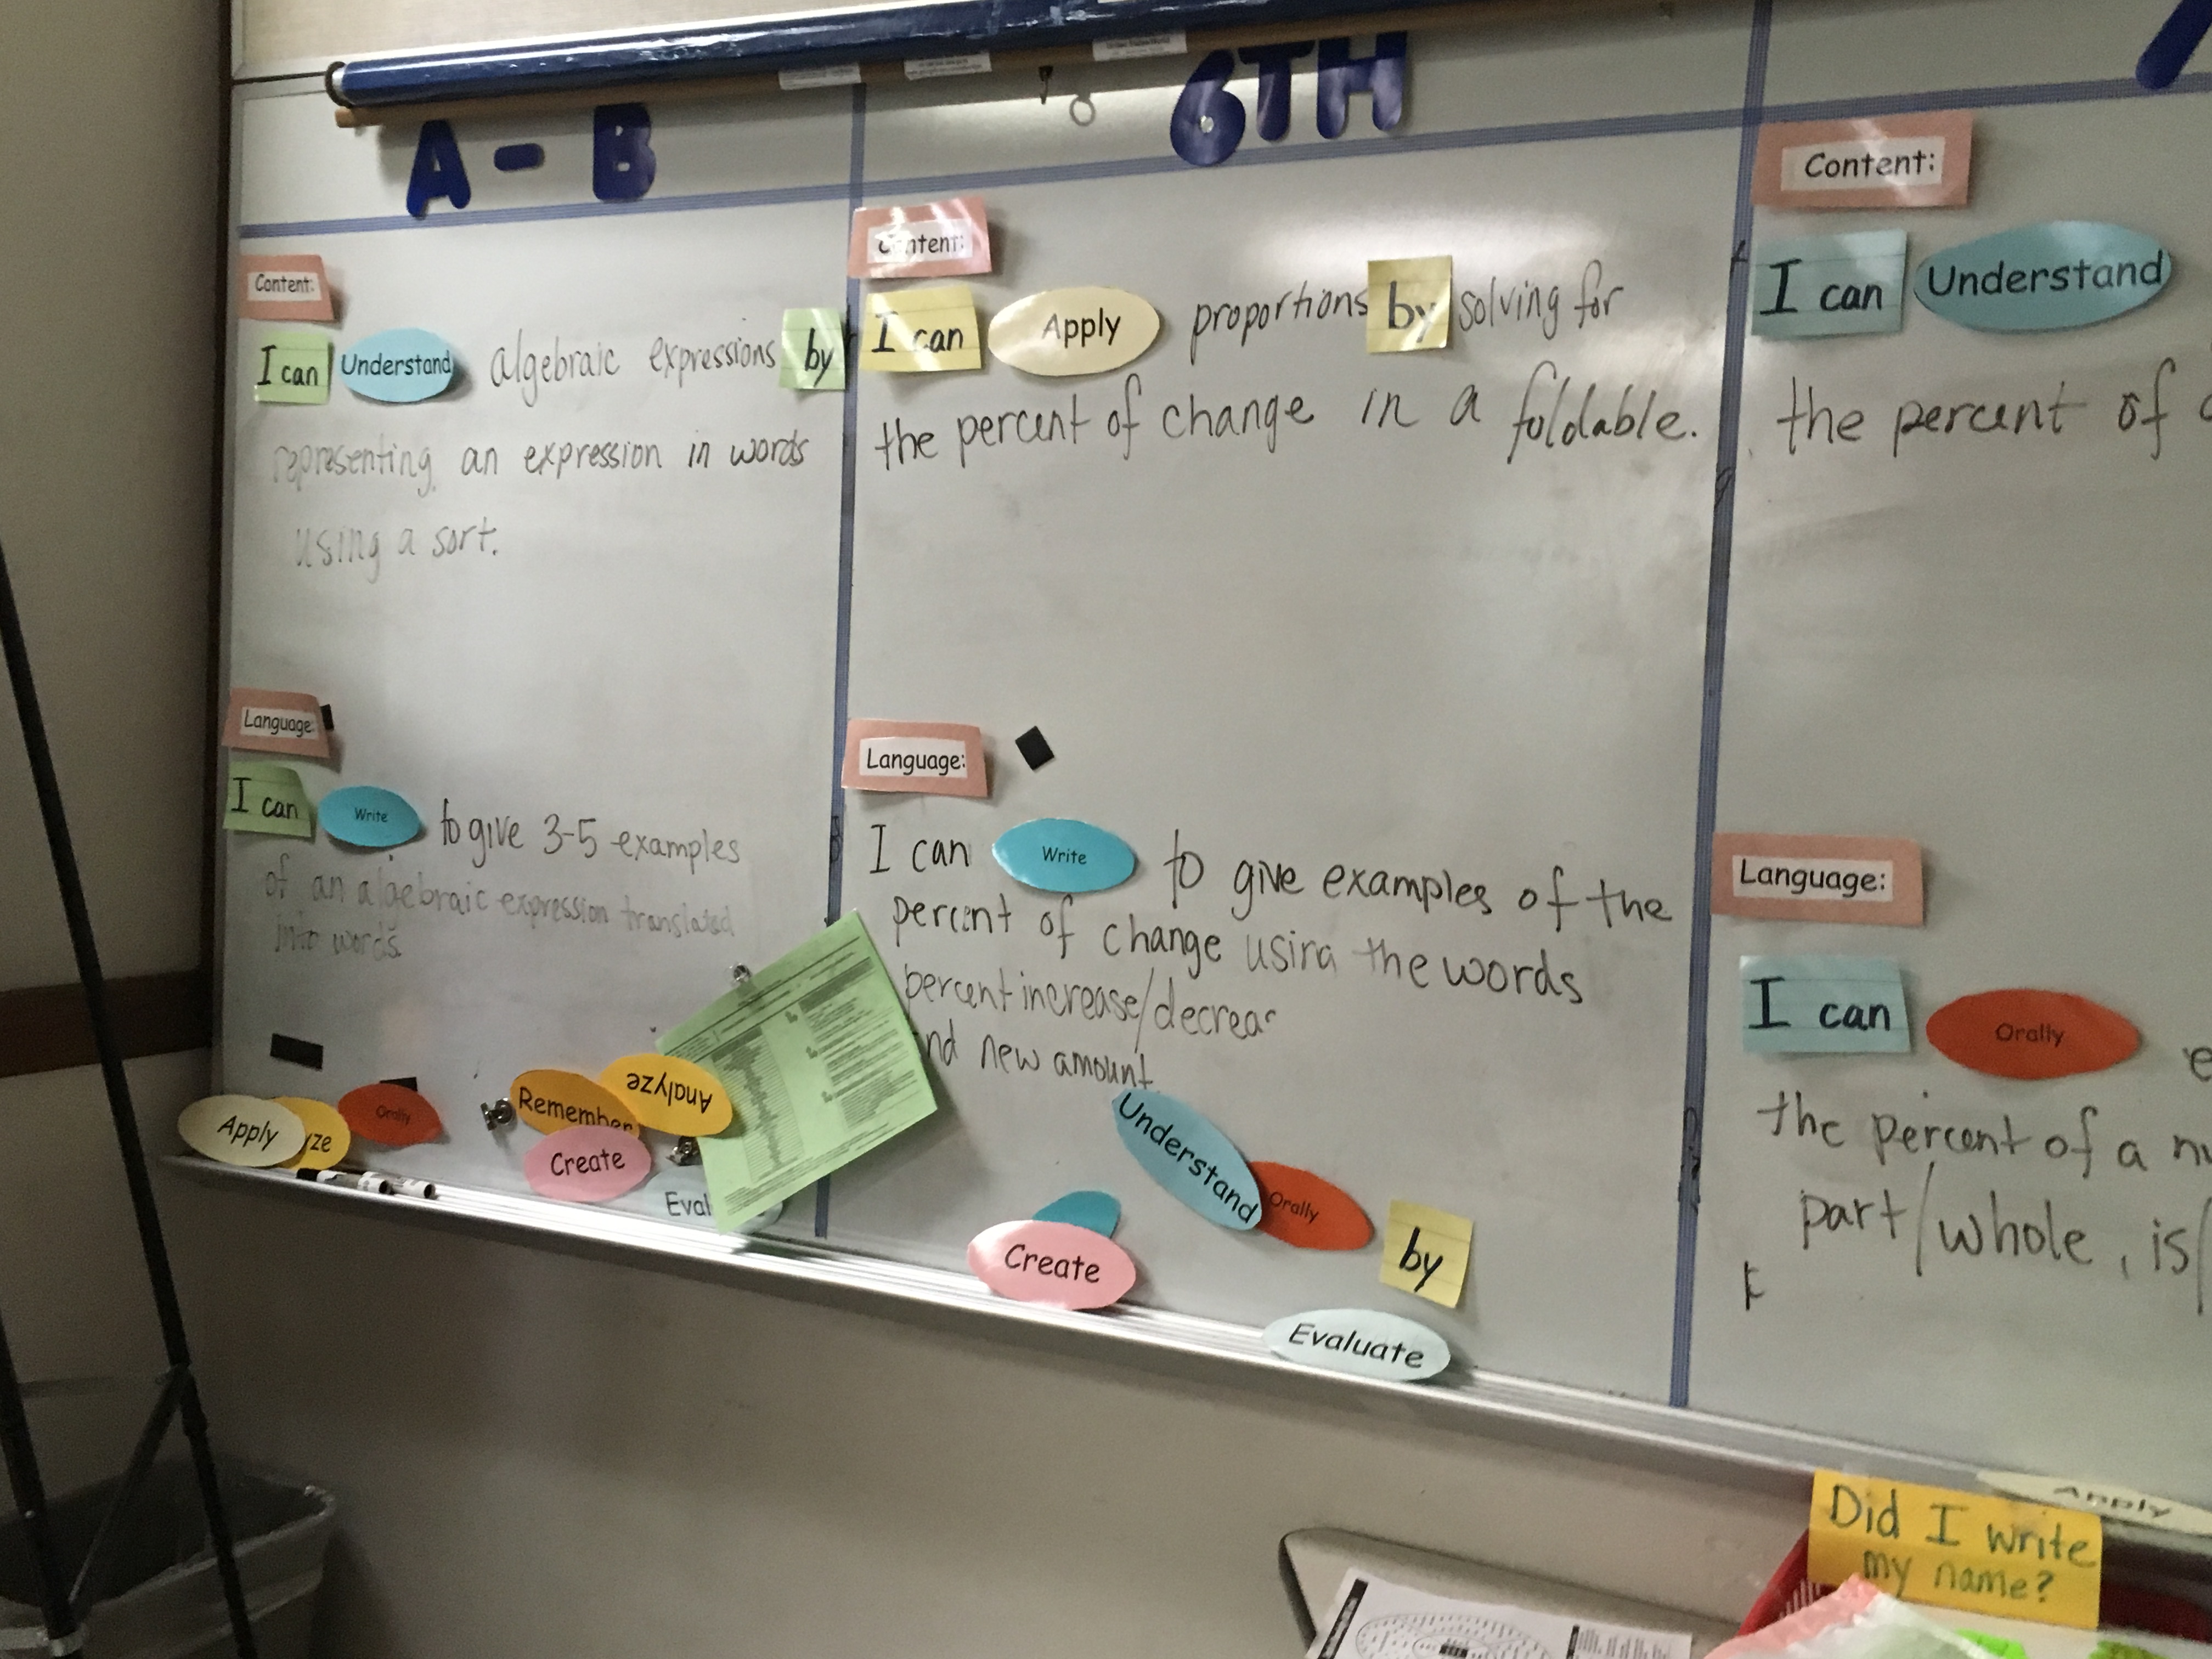 A - B
Content:
I can Understand algebraic expressions by
representing an expression in words
using a sort.
Language:
I can Write to give 3-5 examples
of an algebraic expression translated
into words.
Apply
yze
Orally
Remember
Analyze
Create
Eval
6TH
Content:
I can Apply proportions by solving for
the percent of change in a foldable.
Language:
I can Write to give examples of the
percent of change using the words
percent increase/decreas
nd new amount
Understand
Orally
by
Create
Evaluate
Content:
I can Understand
the percent of
Language:
I can Orally e
the percent of a nu
part/whole, is/
Apply
Did I write
my name?